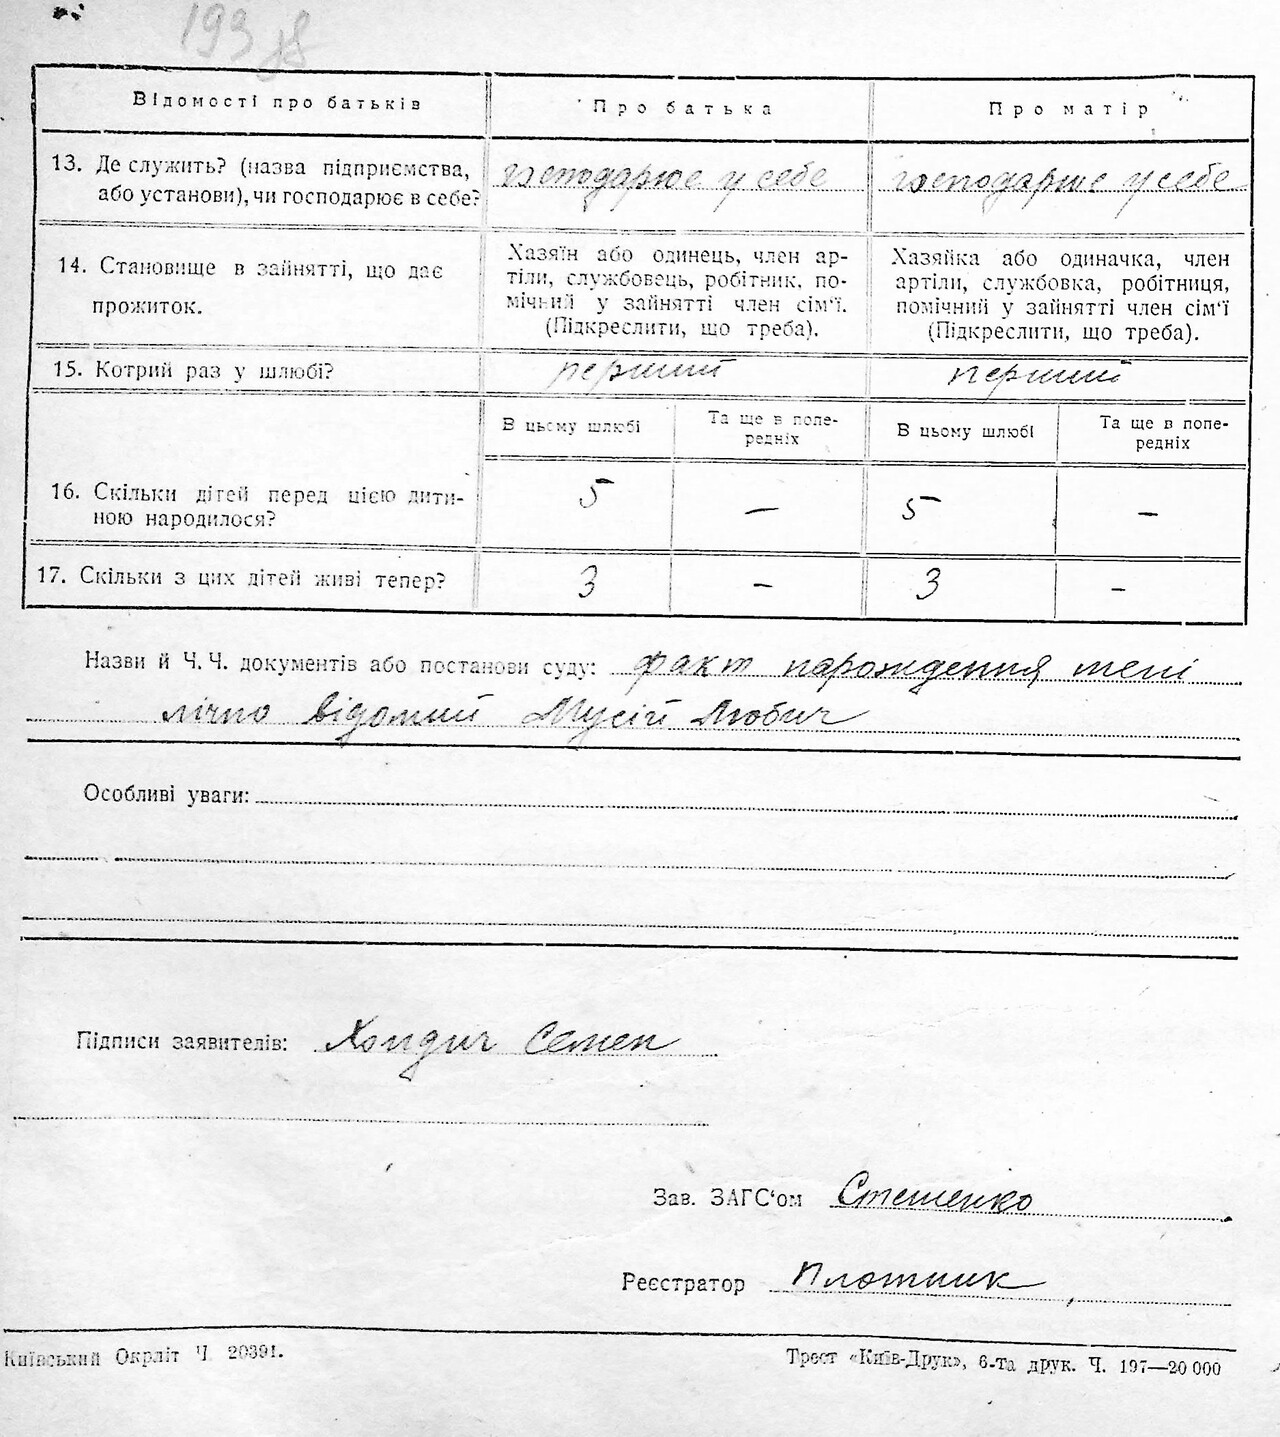 193
Відомості про батьків
Про батька
Про матір
13. Де служить? (назва підприємства,
або установи), чи господарює в себе?
господарює у себе
господарює у себе
14. Становище в зайнятті, що дає
прожиток.
Хазяїн або одинець, член ар-
тіли, службовець, робітник, по-
мічний у зайнятті член сім'ї.
(Підкреслити, що треба).
Хазяйка або одиначка, член
артіли, службовка, робітниця,
помічний у зайнятті член сім'ї
(Підкреслити, що треба).
15. Котрий раз у шлюбі?
перший
перший
В цьому шлюбі
Та ще в попе-
редніх
В цьому шлюбі
Та ще в попе-
редніх
16. Скільки дітей перед цією дити-
ною народилося?
5
—
5
—
17. Скільки з цих дітей живі тепер?
3
–
3
–
Назви й Ч. Ч. документів або постанови суду: факт народження мені
лічно відомий Мусій Любич
Особливі уваги:
Підписи заявителів: Хондич Семен
Зав. ЗАГС'ом Стешенко
Реєстратор Плотник
Київський Окрліт Ч 20391.
Трест «Київ-Друк», 6-та друк. Ч. 197—20 000